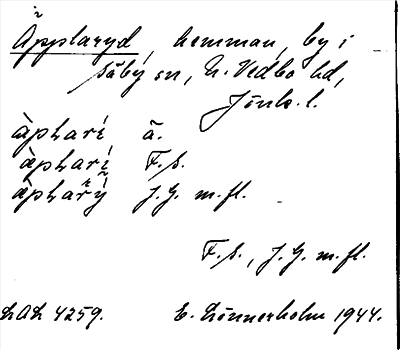 Äpplaryd, hemman, by i
Säby sn, N. Vedbo hd,
Jönk. l.
àpharí ã.
àpharí F.s.
àphar̃ý J.G. m.fl.
F.s., J.G. m.fl.
LAL 4259. E. Lönnerholm 1944.